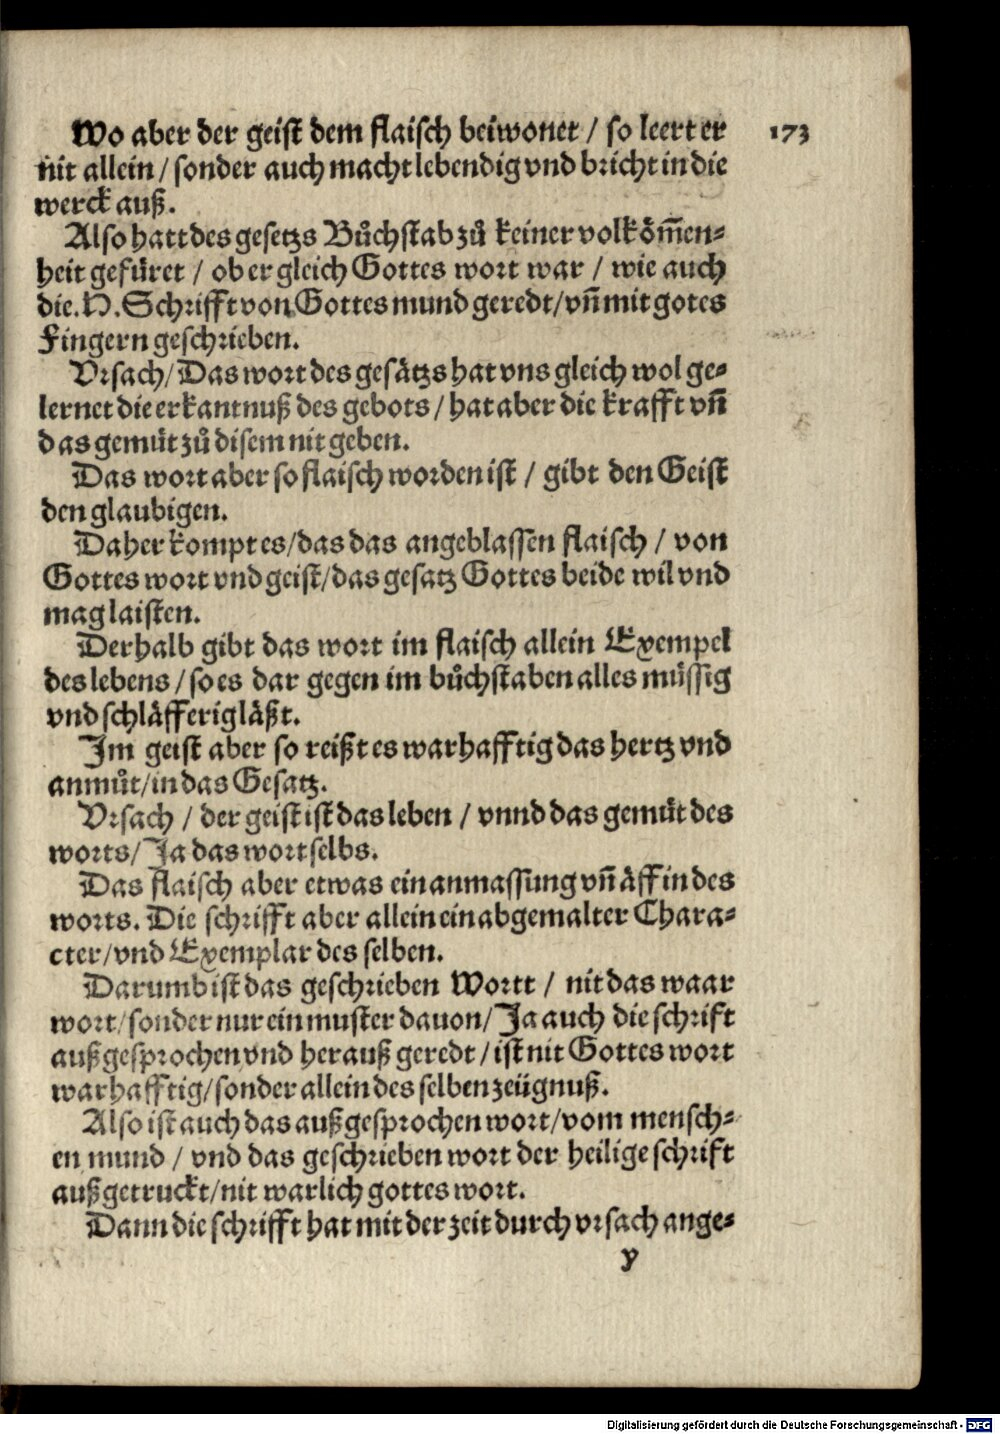 Wo aber der geist dem flaisch beiwonet / so leert er 173
nit allein / sonder auch macht lebendig vnd bricht in die
werck auß.
Also hatt des gesetzs Bůchstab zů keiner volkōm̄en-
heit gefüret / ob er gleich Gottes wort war / wie auch
die .H. Schrifft von Gottes mund geredt / vn̄ mit gotes
Fingern geschrieben.
Vrsach / Das wort des gesätzs hat vns gleich wol ge-
lernet die erkantnuß des gebots / hat aber die krafft vn̄
das gemüt zů disem nit geben.
Das wort aber so flaisch worden ist / gibt den Geist
den glaubigen.
Daher kompt es / das das angeblassen flaisch / von
Gottes wort vnd geist / das gesatz Gottes beide wil vnd
mag laisten.
Derhalb gibt das wort im flaisch allein Exempel
des lebens / so es dar gegen im bůchstaben alles müssig
vnd schläfferig läßt.
Im geist aber so reißt es warhafftig das hertz vnd
anmůt / in das Gesatz.
Vrsach / der geist ist das leben / vnnd das gemüt des
worts / Ja das wort selbs.
Das flaisch aber etwas ein anmassung vn̄ äffin des
worts. Die schrifft aber allein ein abgemalter Chara-
cter / vnd Exemplar des selben.
Darumb ist das geschrieben Wortt / nit das waar
wort / sonder nur ein muster dauon / Ja auch die schrift
außgesprochen vnd herauß geredt / ist nit Gottes wort
warhafftig / sonder allein des selben zeügnuß.
Also ist auch das außgesprochen wort / vom mensch-
en mund / vnd das geschrieben wort der heilige schrift
außgetruckt / nit warlich gottes wort.
Dann die schrifft hat mit der zeit durch vrsach ange-
y
Digitalisierung gefördert durch die Deutsche Forschungsgemeinschaft - DFG